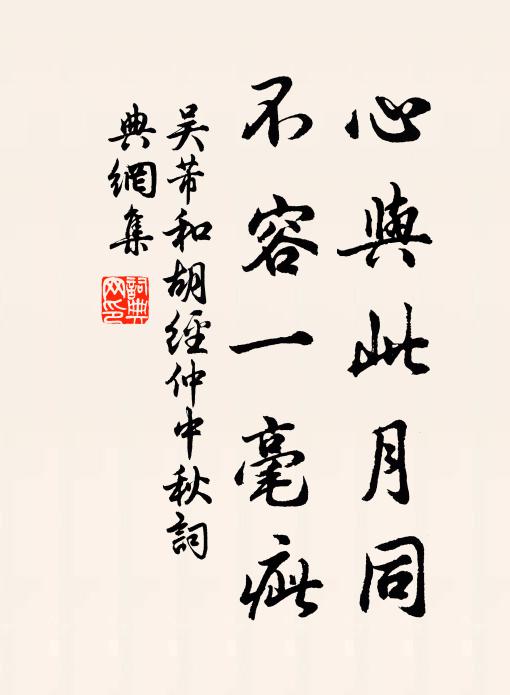 心與此月同
不容一毫疵
吴芾和胡經仲中秋詞
典網集
詞典網印